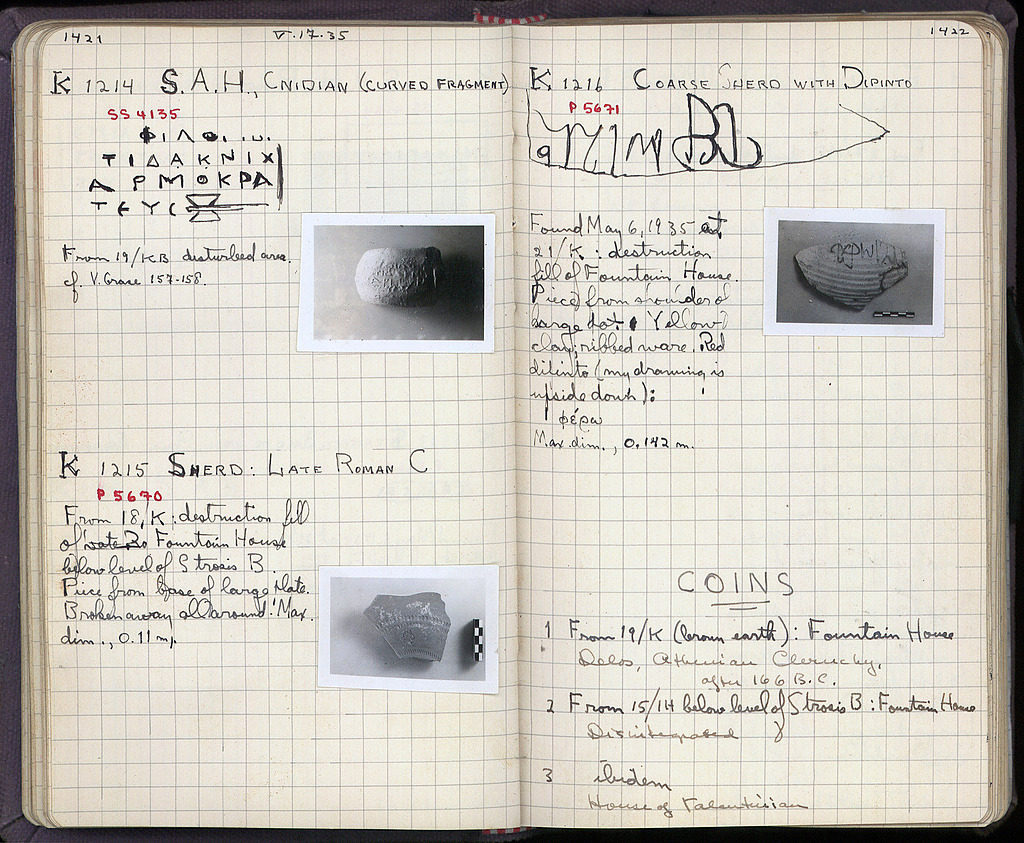 1421
V.17.35
K 1214 S.A.H., CNIDIAN (CURVED FRAGMENT)
SS 4135
ΤΙΔΑΚΝΙΧ
ΑΡΜΟΚΡΑ
ΤΕΥϹ
From 19/KB disturbed area.
cf. V. Grace 157-158.
K 1215 SHERD: LATE ROMAN C
P 5670
From 18/K: destruction fill
of Fountain House
below level of Strosis B.
Piece from base of large plate.
Broken away all around. Max.
dim., 0.11 m.
1422
K 1216 COARSE SHERD WITH DIPINTO
P 5671
Found May 6, 1935 at
21/K: destruction
fill of Fountain House.
Piece from shoulder of
large pot. Yellow
clay; ribbed ware. Red
dipinto (my drawing is
upside down):
φέρω
Max. dim., 0.142 m.
COINS
1 From 19/K (brown earth): Fountain House
Delos, Athenian Cleruchy,
after 166 B.C.
2 From 15/14 below level of Strosis B: Fountain House
Disintegrated
3 ibidem
House of Valentinian